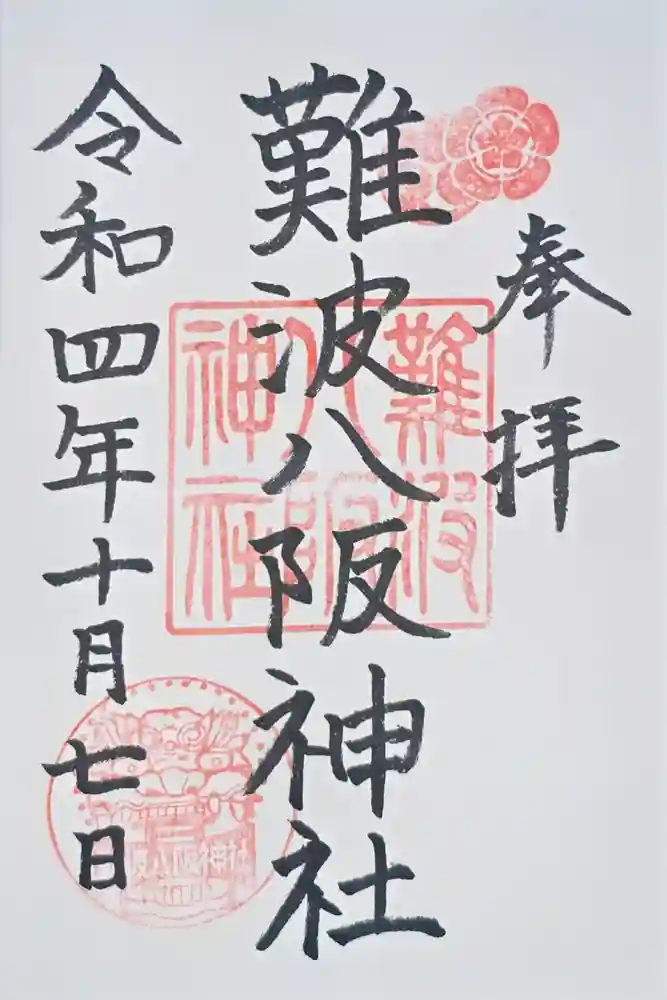 奉拝
難波八阪神社
令和四年十月七日
難波
八阪
神社
難波八阪神社